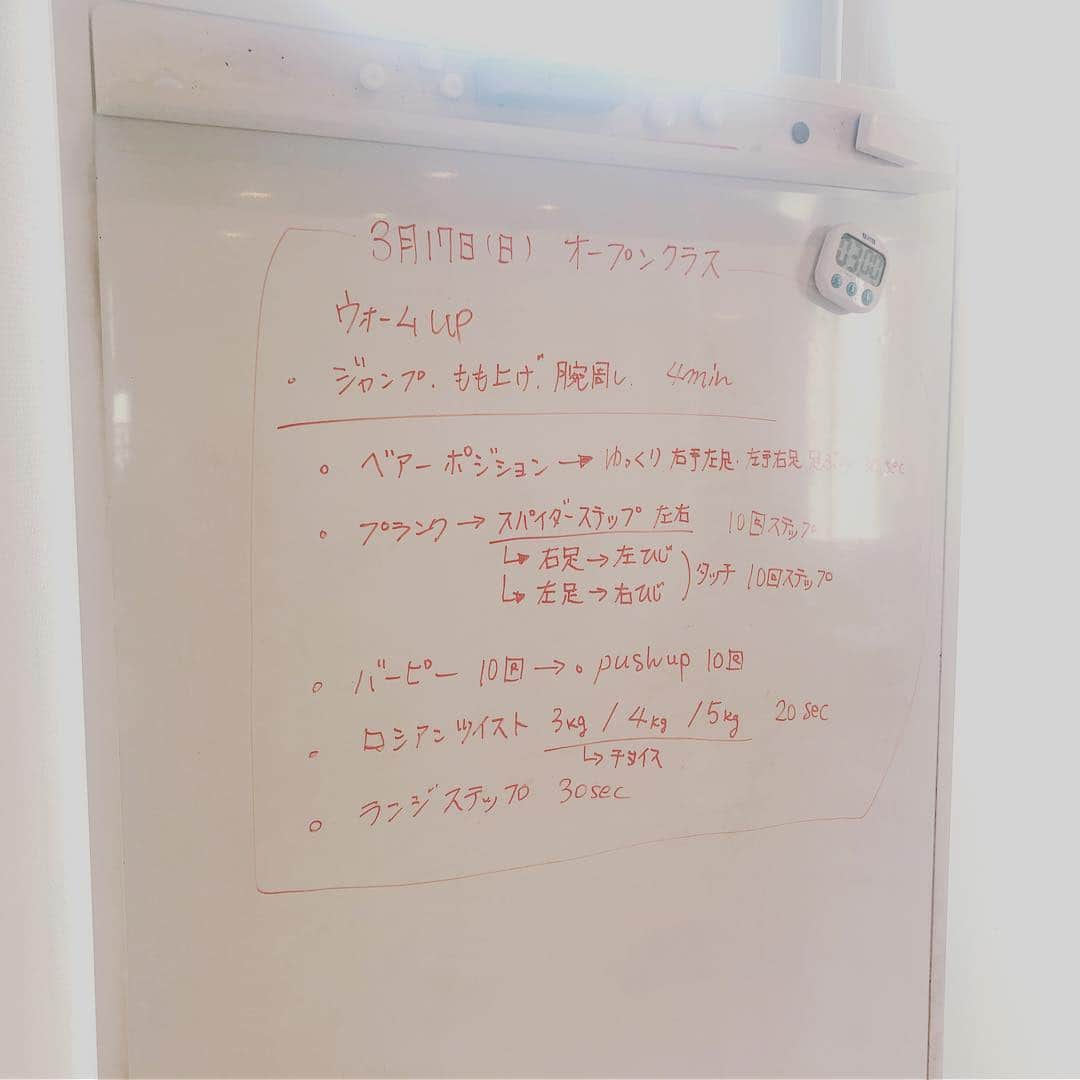 3月17日(日) オープンクラス
ウォームUP
• ジャンプ. もも上げ. 腕周し. 4min
• ベアーポジション → ゆっくり 右手左足. 左手右足. sec
• プランク → スパイダーステップ 左右 10回ステップ
↳ 右足→左ひじ
↳ 左足→右ひじ ) タッチ 10回ステップ
• バーピー 10回 → • pushup 10回
• ロシアンツイスト 3kg / 4kg / 5kg 20sec
↳ チョイス
• ランジステップ 30sec
03:00